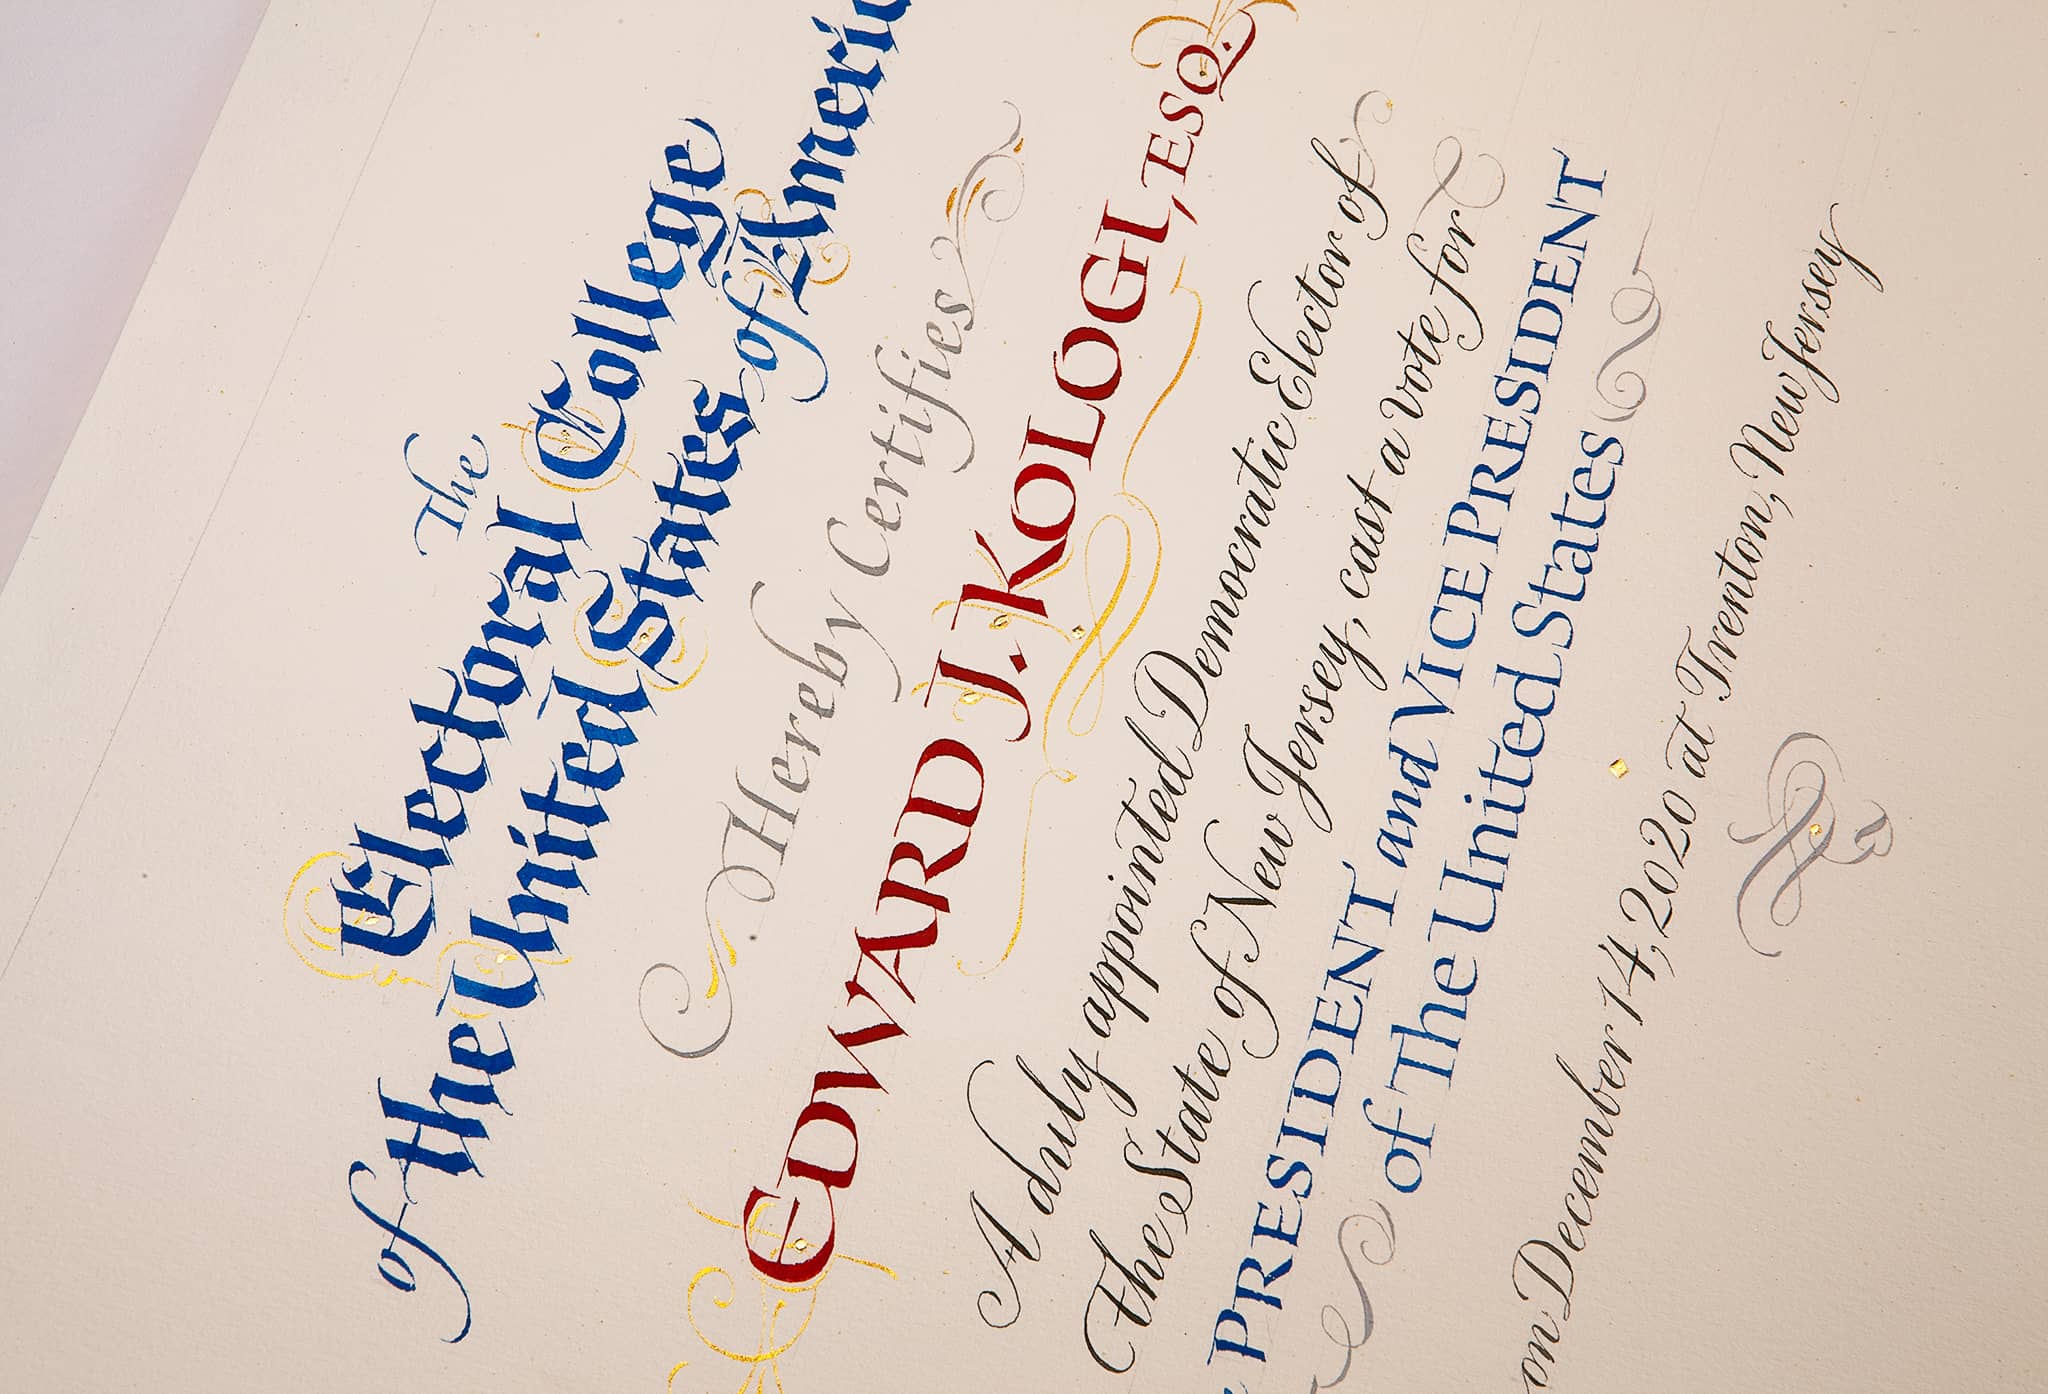 The
Electoral College
of the United States of Americ
Hereby Certifies
EDWARD J. KOLOGI, ESQ.
A duly appointed Democratic Elector of
The State of New Jersey, cast a vote for
PRESIDENT and VICE PRESIDENT
of The United States
on December 14, 2020 at Trenton, New Jersey